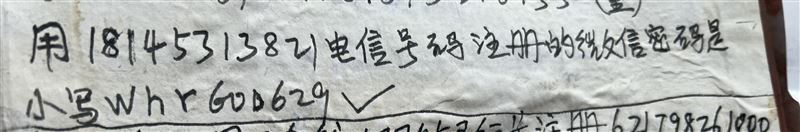 用18145313821电信号码注册的微信密码是
小写whr600629✓
注册621798261000